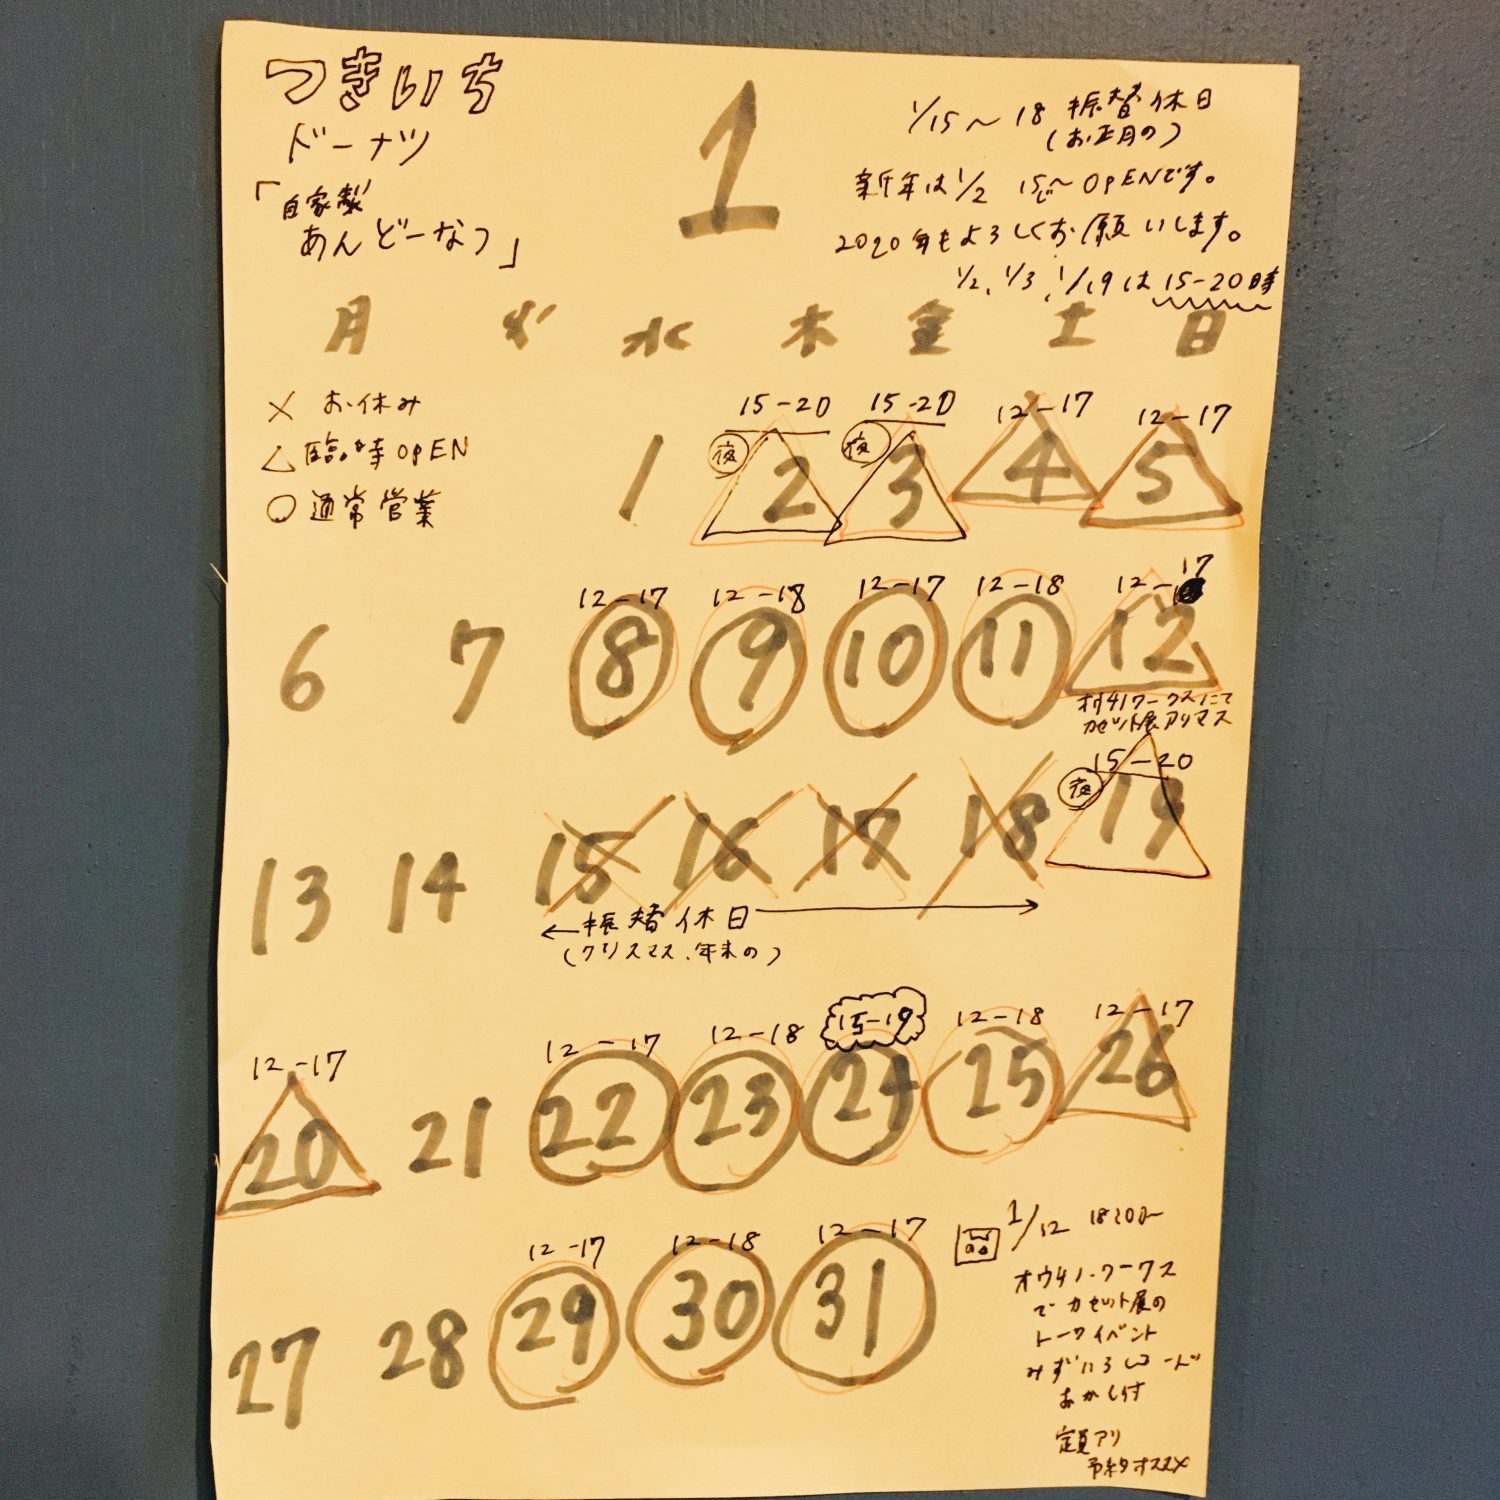 つきいち
ドーナツ
「自家製
あんどーなつ」
1
1/15〜18 振替休日
(お正月の)
新年は1/2 15〜OPENです。
2020年もよろしくお願いします。
1/2、1/3、1/19は15-20時
月 火 水 木 金 土 日
× お休み
△ 臨時OPEN
○ 通常営業
15-20 15-20 12-17 12-17
夜 夜
1 2 3 4 5
12-17 12-18 12-17 12-18 12-17
6 7 8 9 10 11 12
オウチノワークスにて
カセット展アリマス
15-20
夜
13 14 15 16 17 18 19
←振替休日→
(クリスマス、年末の)
12-17 12-17 12-18 15-19 12-18 12-17
20 21 22 23 24 25 26
12-17 12-18 12-17
27 28 29 30 31
1/12 18:00〜
オウチノ・ワークス
で カセット展の
トークイベント
みずいろレコード
おかし付
定員アリ
予約オススメ